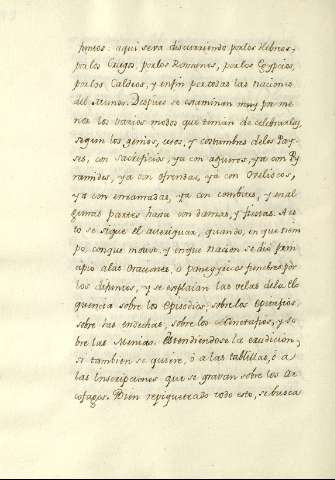 juntos: aqui será discurriendo por los Hebreos,
por los Griegos, por los Romanos, por los Egypcios,
por los Caldeos, y enfin por todas las nacione
del Mundo. Despues se examinan muy por me
nor los varios modos que tenian de celebrarlas,
segun los genios, usos, y costumbres delos Pay-
ses, con sacrificios, ya con agueros, ya con Py
ramides, ya con ofrendas, ya con Obeliscos,
ya con enramadas, ya con combites, y en al-
gunas partes hasta con danzas, y fiestas. A es
to se sigue el averiguar, quando, en que tiem
po, con que motivo, y en que nacion se dio prin
cipio alas Oraciones, o panegyricos funebres por
los difuntos, y se explaian las velas dela Elo
quencia sobre los Episodios, sobre los epitafios,
sobre las endechas, sobre los Cenotafios, y so
bre las Nenias. Extendiendose la erudicion,
si tambien se quiere, ó a las tablillas, ó a
las Inscripciones que se gravan sobre los Sar
cofagos. Bien repiqueteado todo esto, se busca